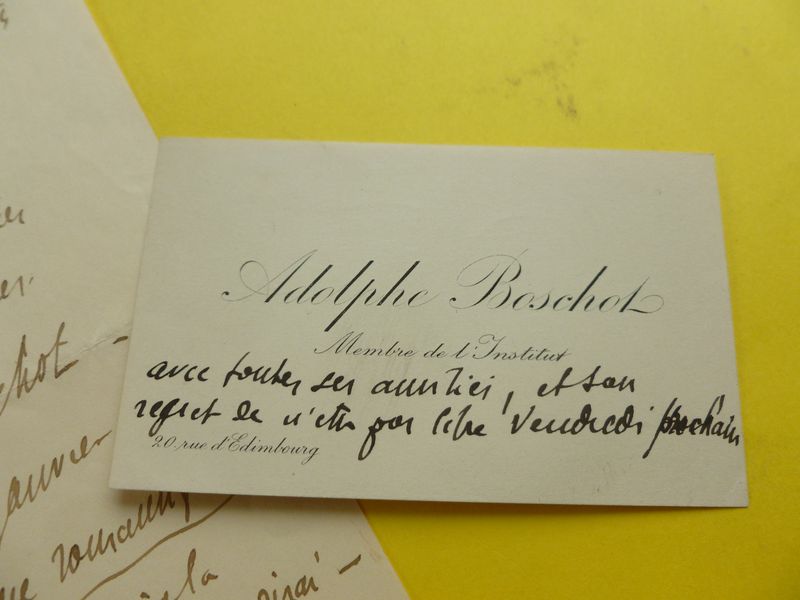 Adolphe Boschot
Membre de l'Institut
avec toutes ses amitiés, et son
regret de n'être pas libre Vendredi prochain
20. rue d'Edimbourg
chot -
janvier
romain